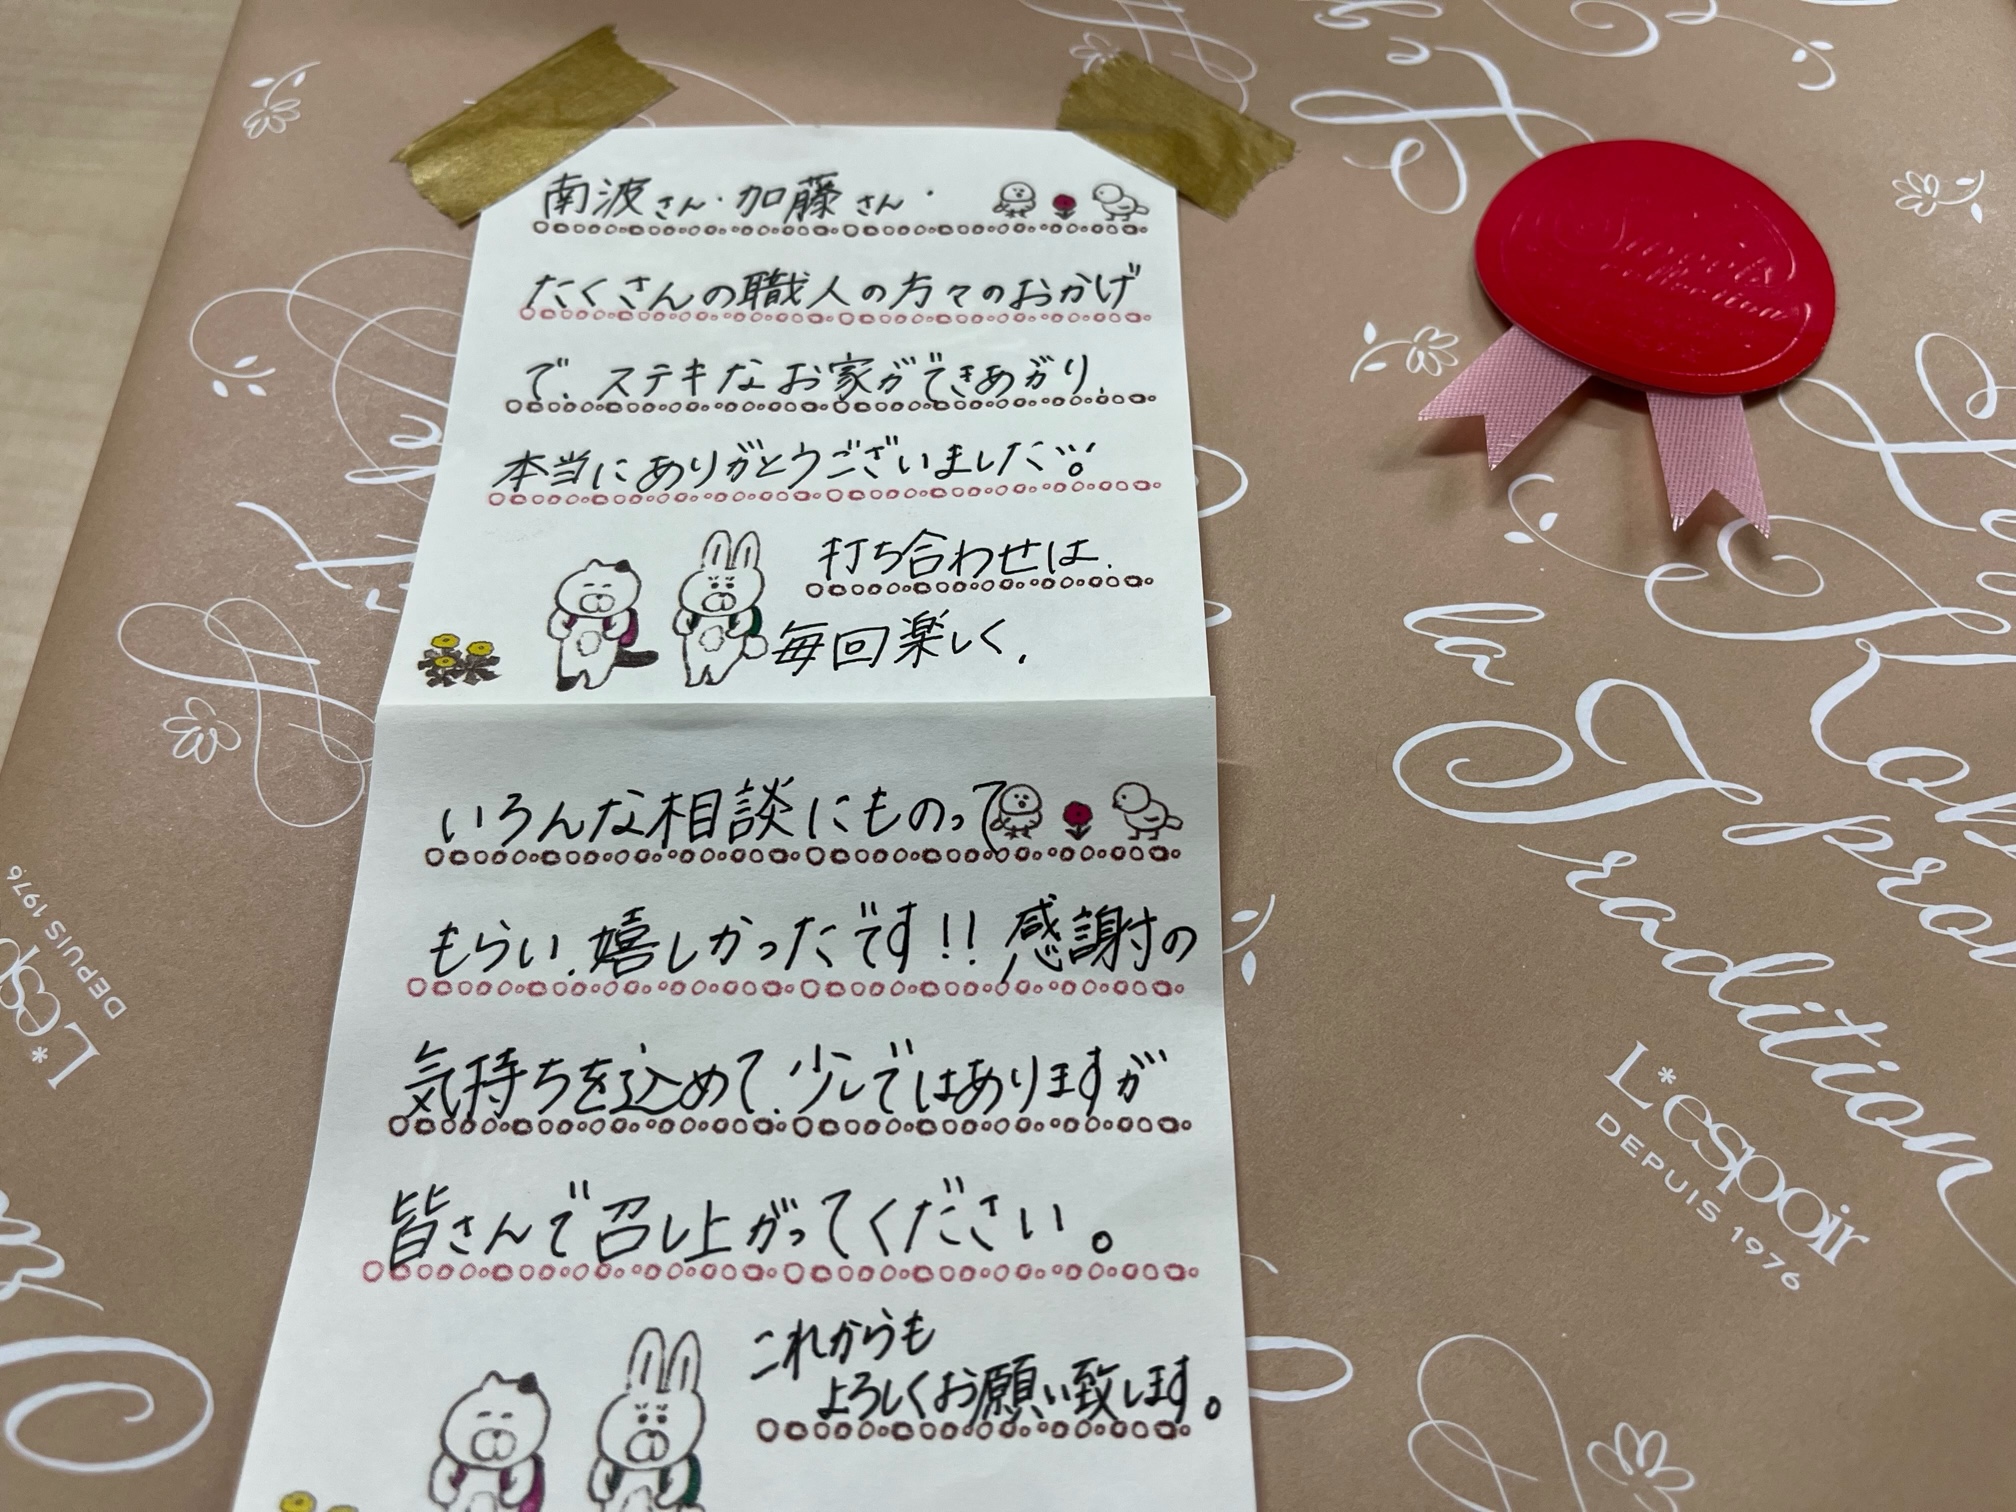 南波さん・加藤さん・
たくさんの職人の方々のおかげ
で、ステキなお家ができあがり、
本当にありがとうございました!!
打ち合わせは、
毎回楽しく、
いろんな相談にものって
もらい、嬉しかったです!!感謝の
気持ちを込めて、少しではありますが
皆さんで召し上がってください。
これからも
よろしくお願い致します。
la Tradition
L'espoir
DEPUIS 1976
L'espoir
DEPUIS 1976